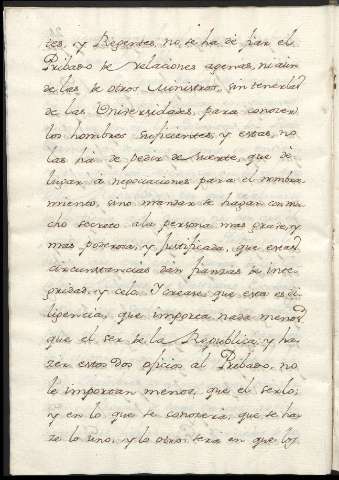 tes, y Regentes, no, se ha de fiar el
Pribado de relaciones agenas, ni aun
de las de otros Ministros, sin tenerlas
de las Universidades, para conocer
los hombres suficientes, y estas, no
las ha de pedir de suerte, que dè
lugar à negociaciones para el nombra
miento, sino mandar se hagan con mu
cho secreto ala persona mas grave, y
mas poderosa, y justificada, que estas
circunstancias dan fianzas de inte
gridad, y celo. Y crease, que esta es di
ligencia, que importa nada menos
que el ser de la Republica, y ha
zer estos dos oficios al Pribado, no
le importan menos, que el serlo;
y en lo que se conocera, que se ha
ze lo uno, y lo otro, sera en que los